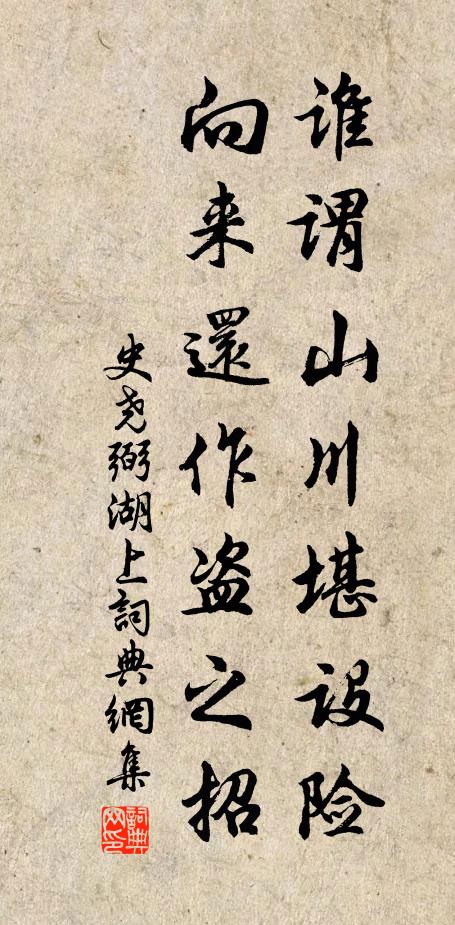 谁谓山川堪设险
向来還作盗之招
史尧弼湖上詞典網集
詞典网印